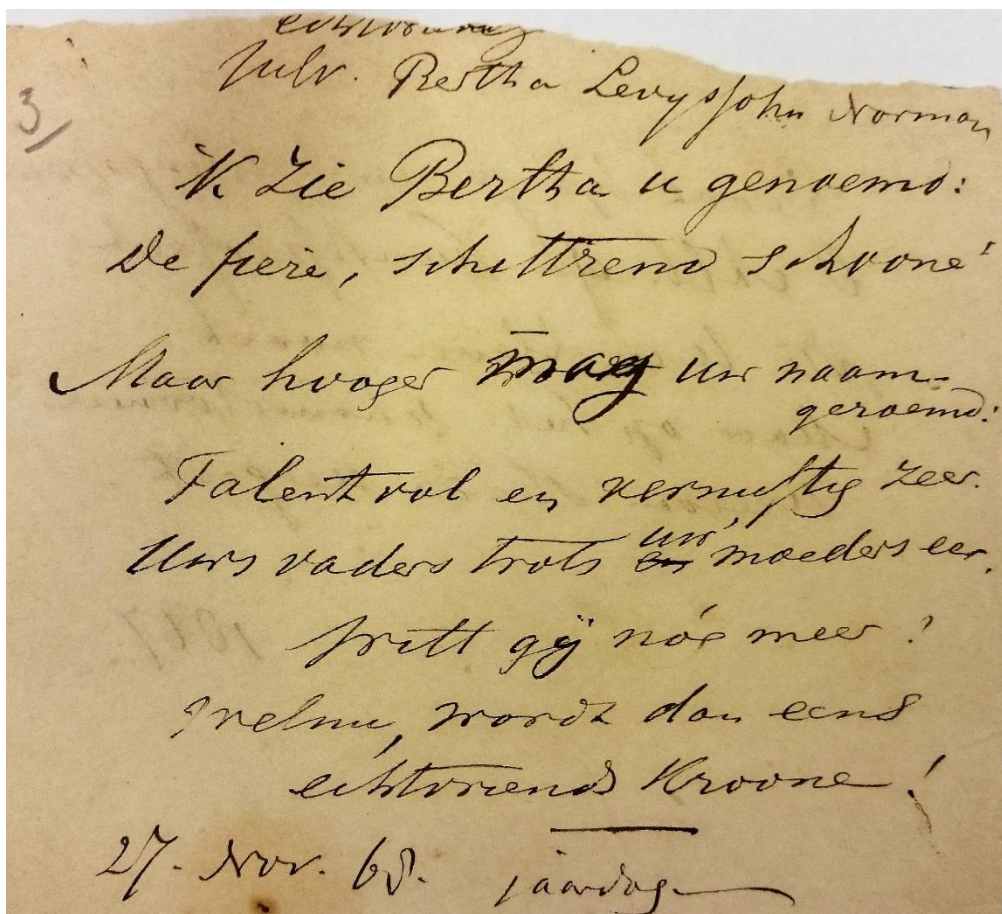 3/
Bertha Levyssohn Norman
'k Zie Bertha u genoemd:
De fiere, schittrend schoone!
Maar hooger mag uw naam
geroemd:
Talentvol en vernuftig zeer.
Uws vaders trots uw moeders eer.
Wilt gij nóg meer?
Welnu, wordt dan eens
echtvriends Kroone!
27. Nov. 68. jaardag